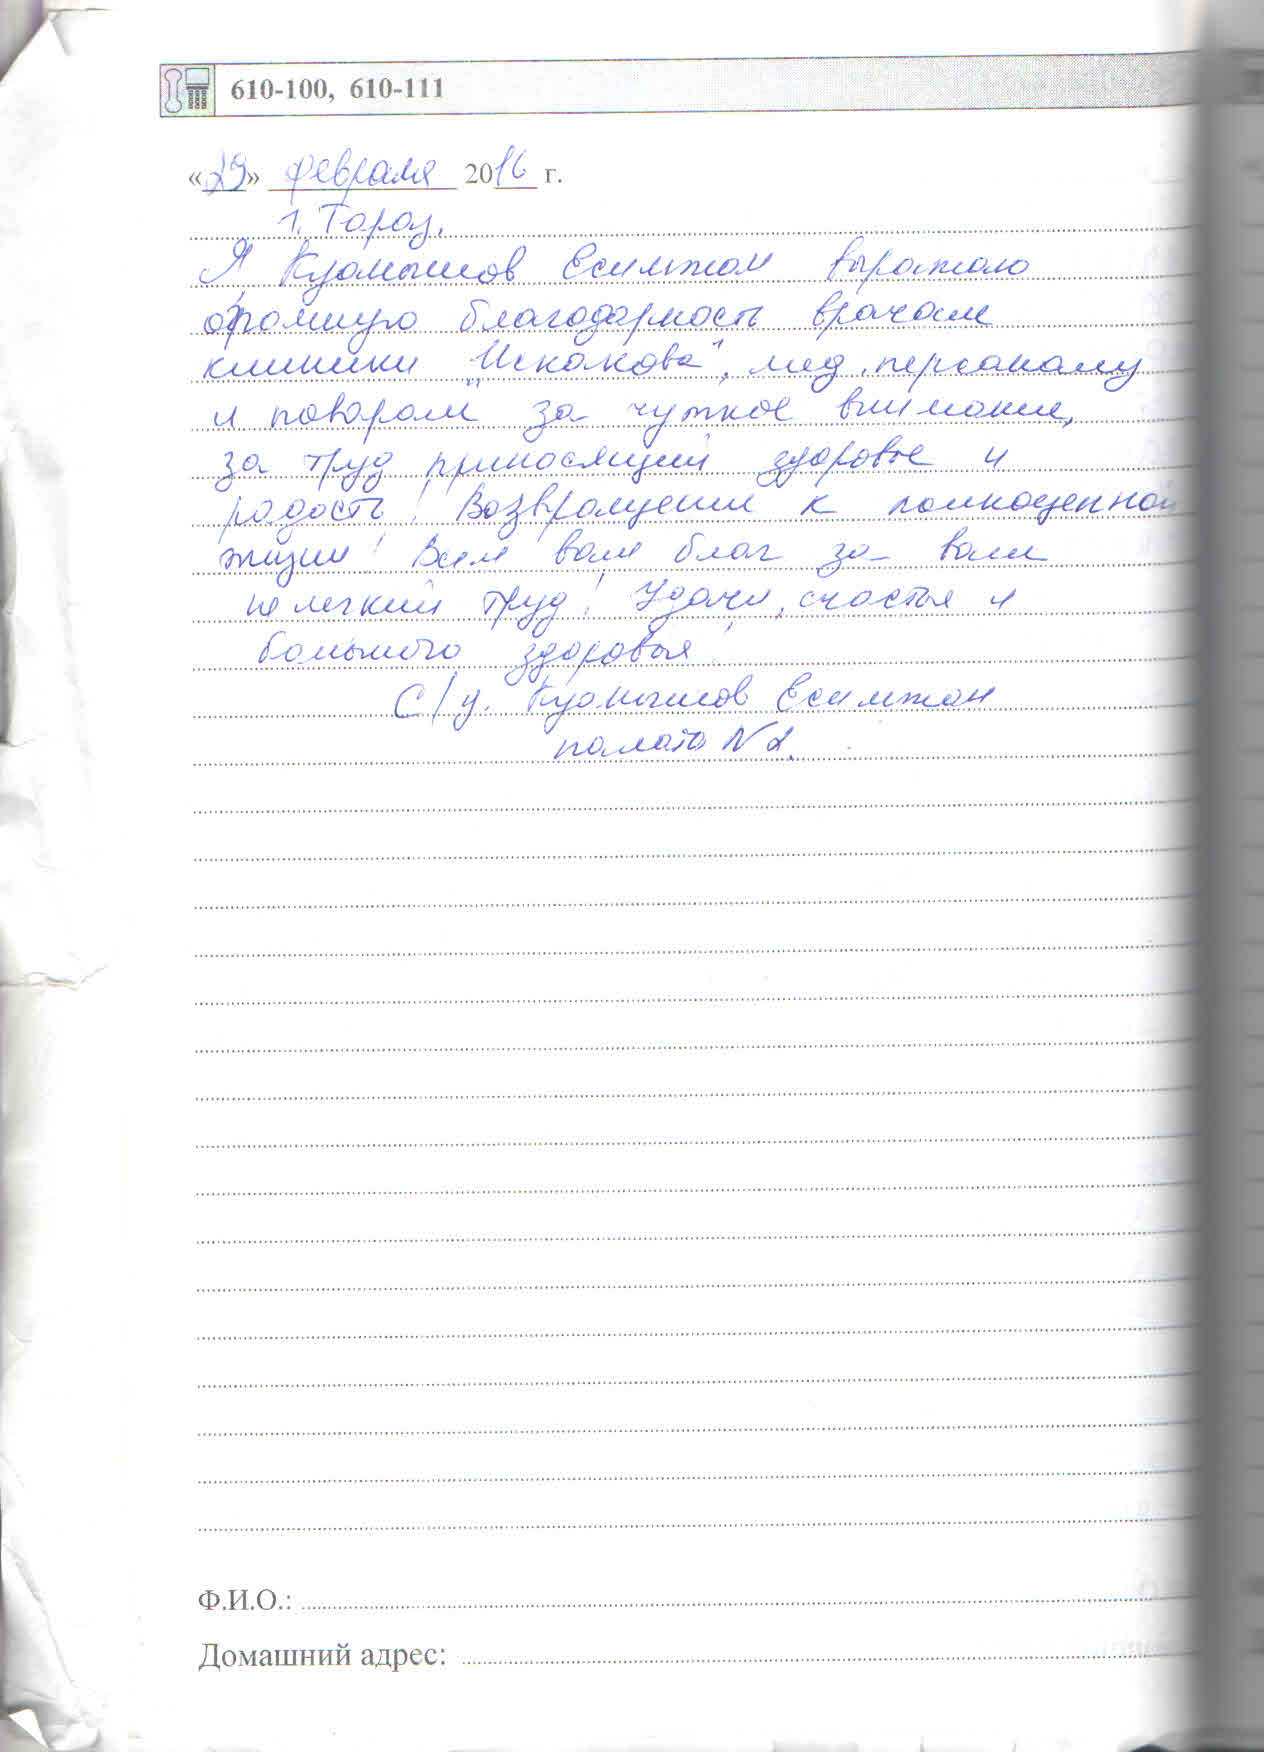 610-100, 610-111
«29» февраля 2016 г.
г. Тараз.
Я Куанышов Есимжан выражаю
огромную благодарность врачам
клиники "Искакова", мед. персаналу
и поварам за чуткое внимание,
за труд приносящий здоровье и
радость! Возвращении к полноценной
жизни! Всем вам благ за ваш
не легкий труд! Удачи, счастья и
большого здоровья!
С/у. Куанышов Есимжан
палата №2.
Ф.И.О.:
Домашний адрес: